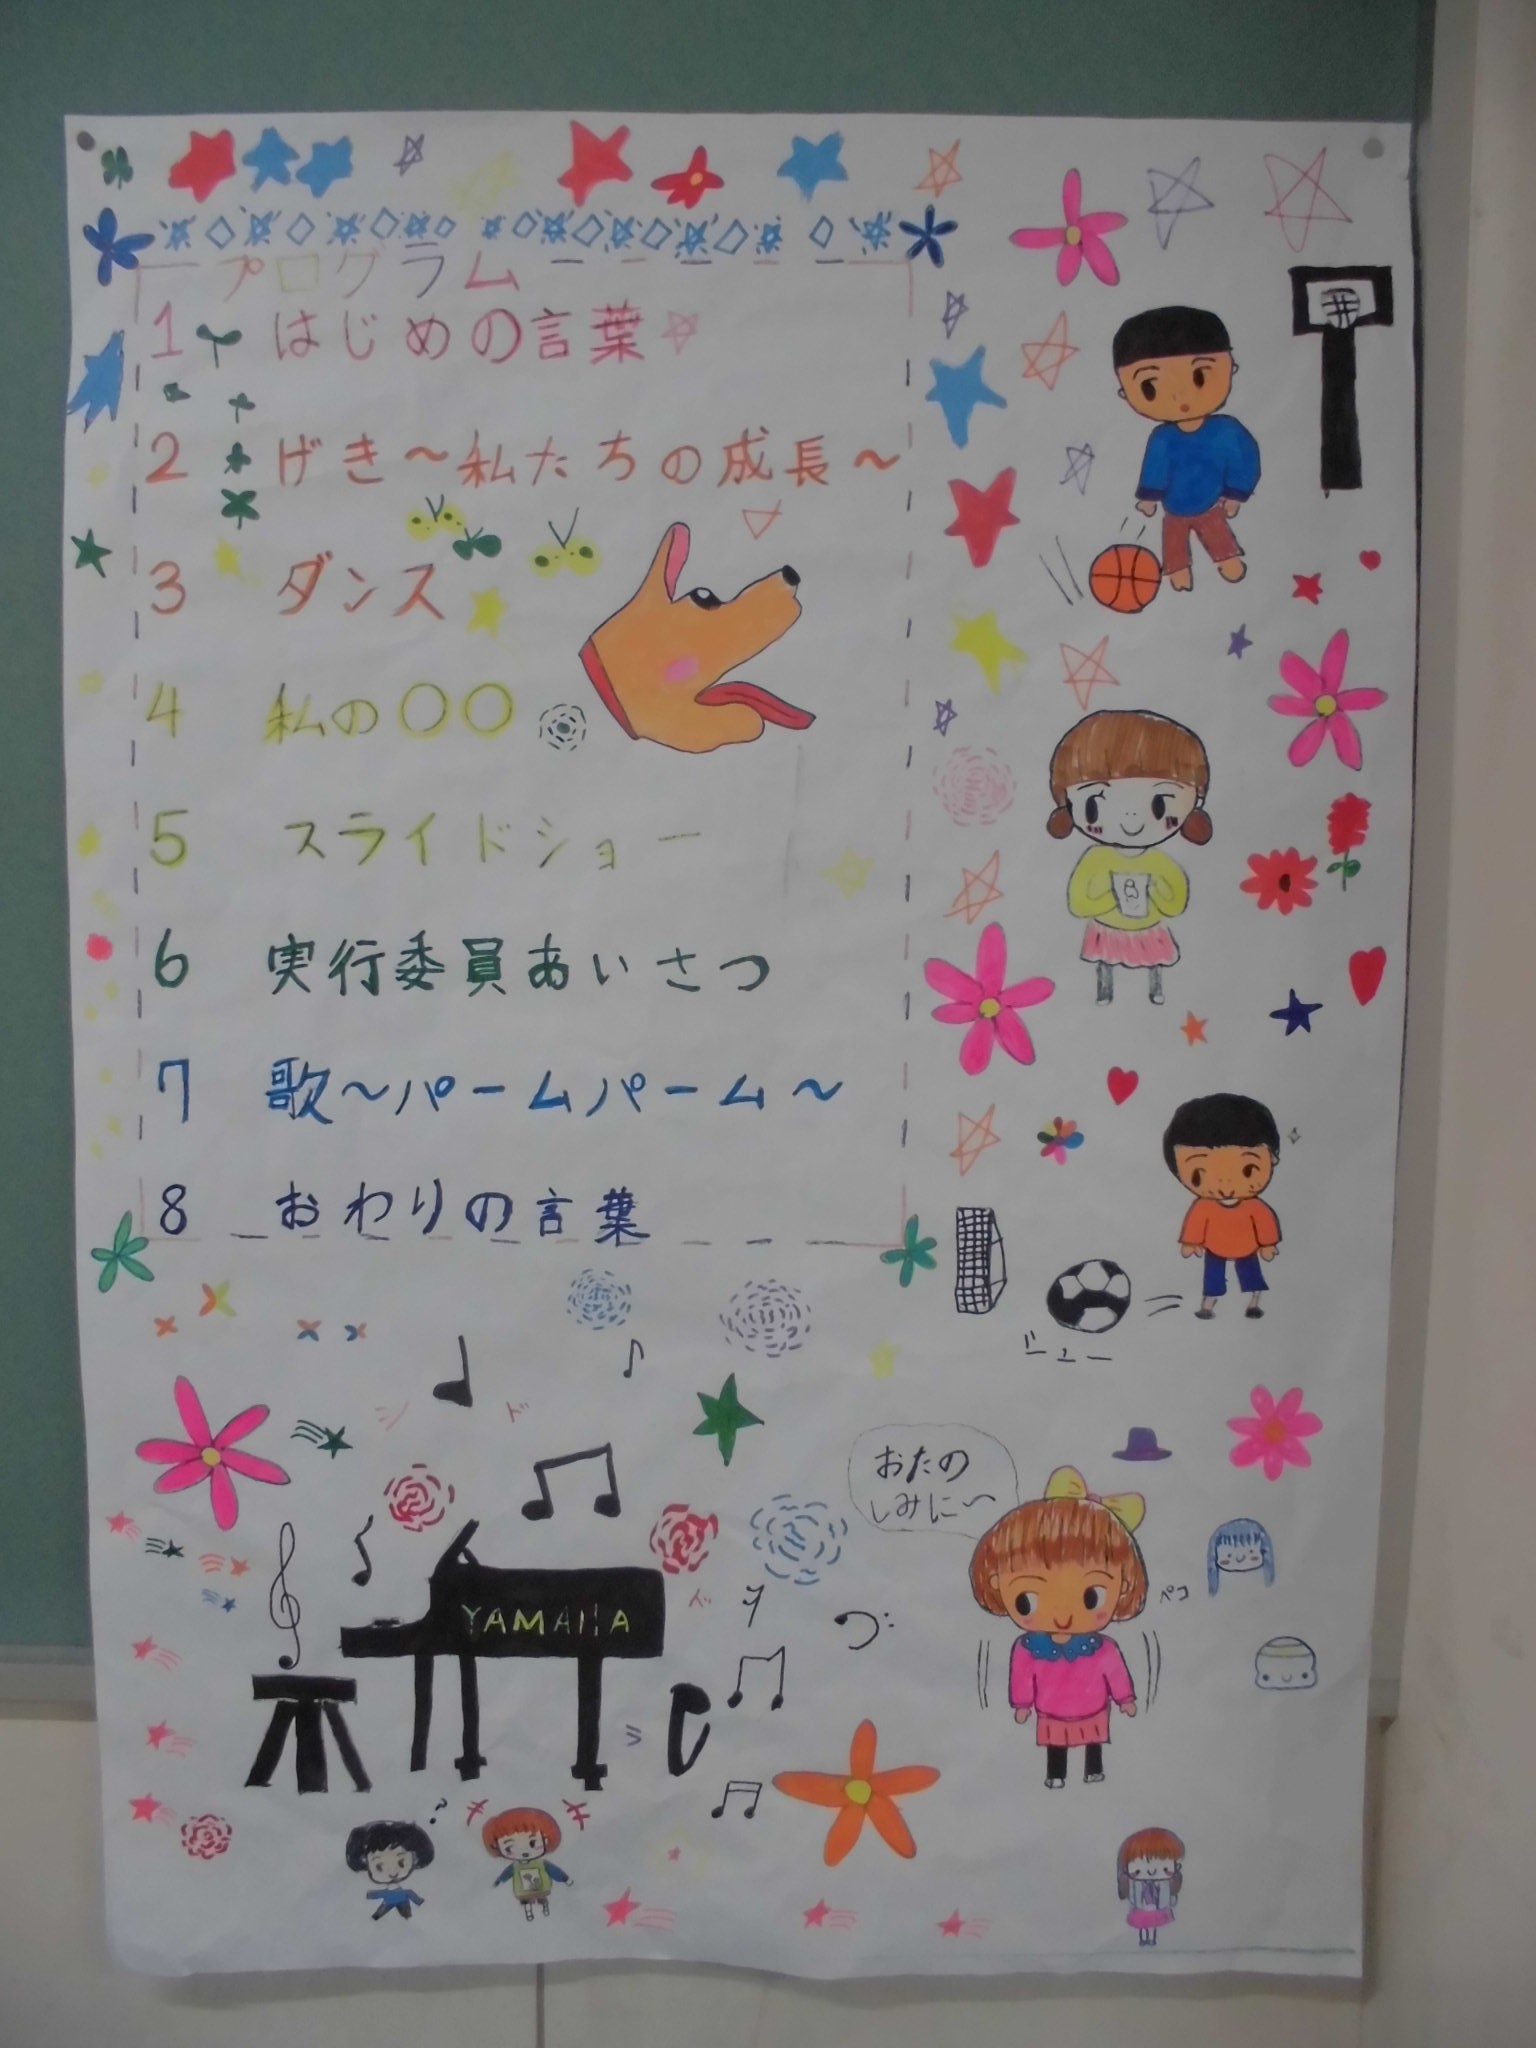 プログラム
1 はじめの言葉
2 げき～私たちの成長～
3 ダンス
4 私の〇〇
5 スライドショー
6 実行委員あいさつ
7 歌～パームパーム～
8 おわりの言葉
おたの
しみに～
ペコ
YAMAHA